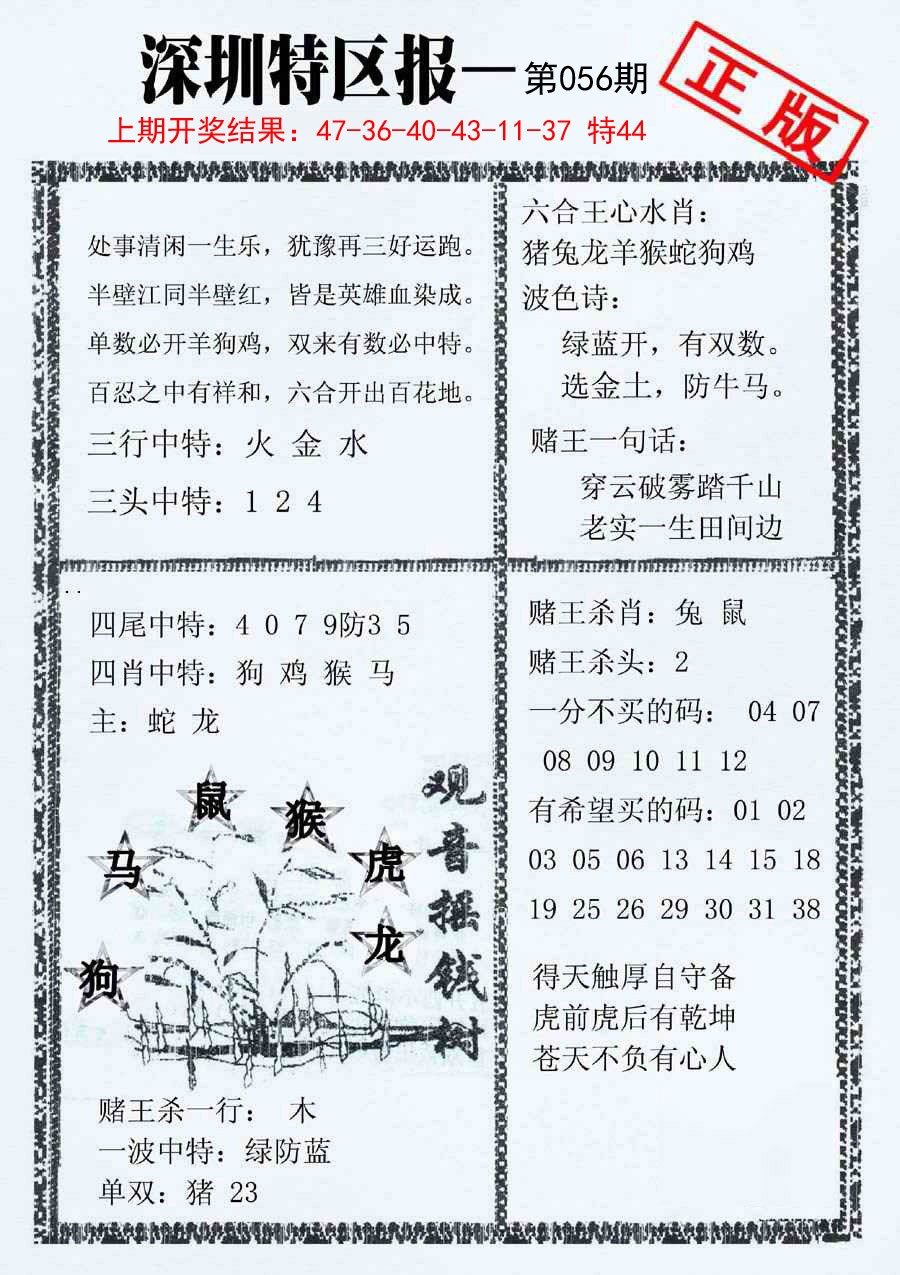 深圳特区报—第056期
正版
上期开奖结果：47-36-40-43-11-37 特44
处事清闲一生乐，犹豫再三好运跑。
半壁江同半壁红，皆是英雄血染成。
单数必开羊狗鸡，双来有数必中特。
百忍之中有祥和，六合开出百花地。
三行中特：火 金 水
三头中特：1 2 4
六合王心水肖：
猪兔龙羊猴蛇狗鸡
波色诗：
绿蓝开，有双数。
选金土，防牛马。
赌王一句话：
穿云破雾踏千山
老实一生田间边
四尾中特：4 0 7 9防3 5
四肖中特：狗 鸡 猴 马
主：蛇 龙
鼠
猴
马
虎
龙
狗
观音摇钱树
赌王杀一行： 木
一波中特：绿防蓝
单双：猪 23
赌王杀肖：兔 鼠
赌王杀头：2
一分不买的码： 04 07
08 09 10 11 12
有希望买的码：01 02
03 05 06 13 14 15 18
19 25 26 29 30 31 38
得天触厚自守备
虎前虎后有乾坤
苍天不负有心人